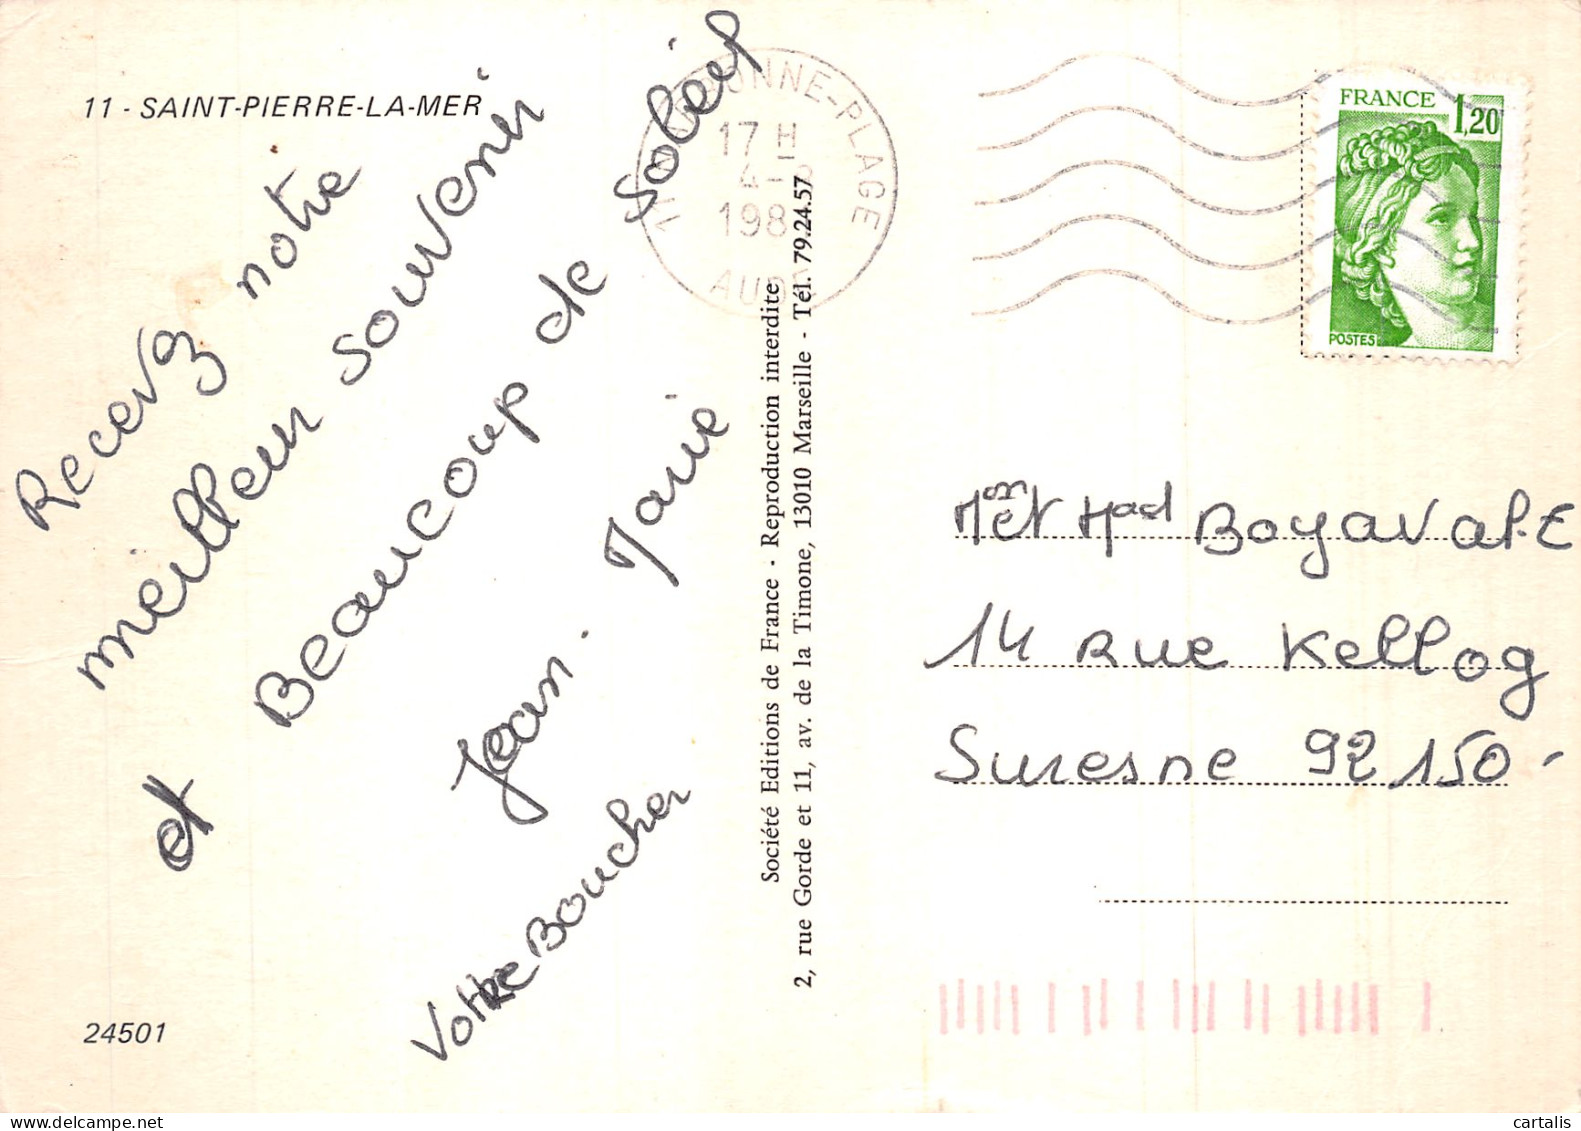 11 - SAINT-PIERRE-LA-MER
Recevez notre
meilleur souvenir
et Beaucoup de soleil
Jean-Marie
Votre Boucher
24501
Société Editions de France - Reproduction interdite
2, rue Gorde et 11, av. de la Timone, 13010 Marseille - Tél. 79.24.57
NARBONNE-PLAGE
17 H
4-
198
AUDE
FRANCE 1,20
POSTES
Mr et Boyaval.E
14 Rue Kellog
Suresne 92150-
cartalis